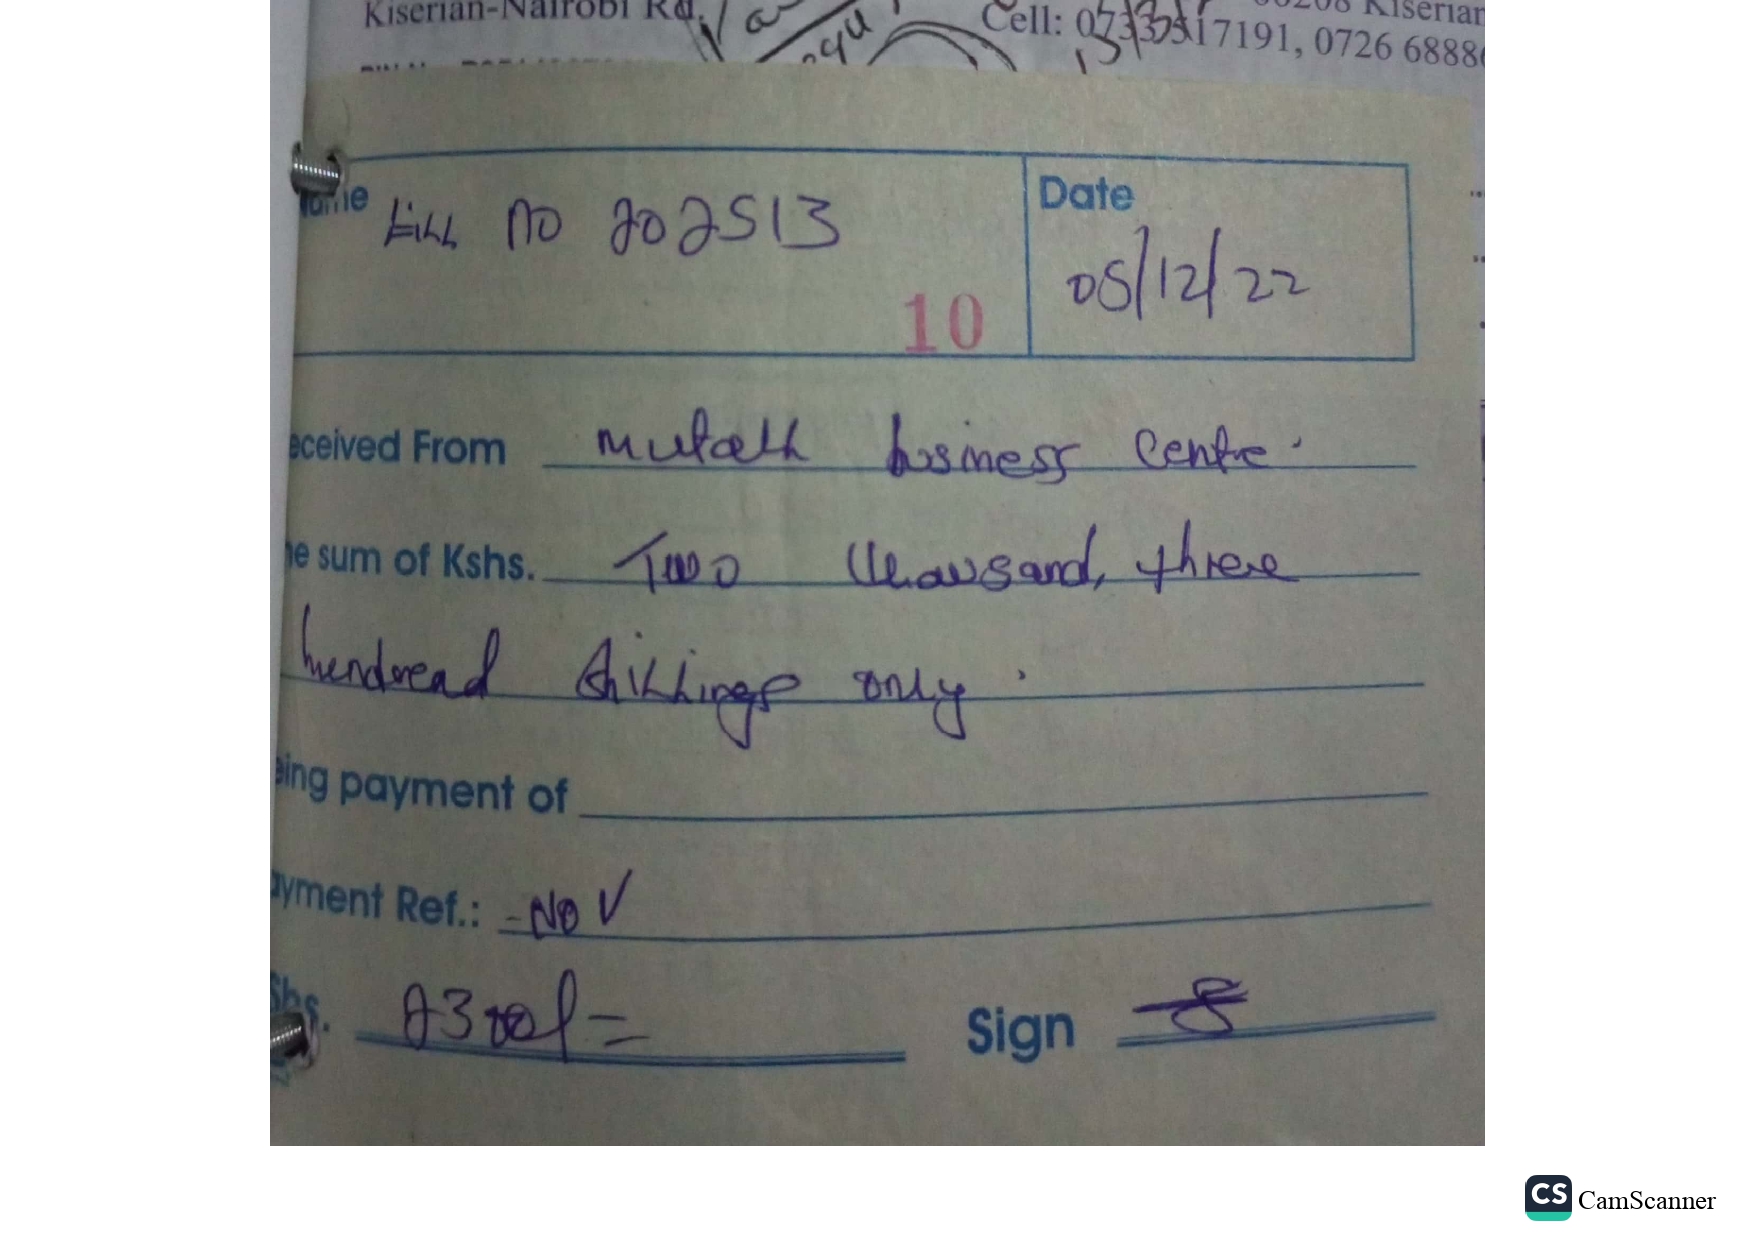 Kiserian-Nairobi Rd.
Kiserian
Cell: 0733 517191, 0726 6888
ame
Till no 202513
10
Date
05/12/22
eceived From mutath business Centre.
he sum of Kshs. Two thousand, three
hundread shillings only.
eing payment of
ayment Ref.: - NOV
Shs. 2300/=
Sign
CS CamScanner